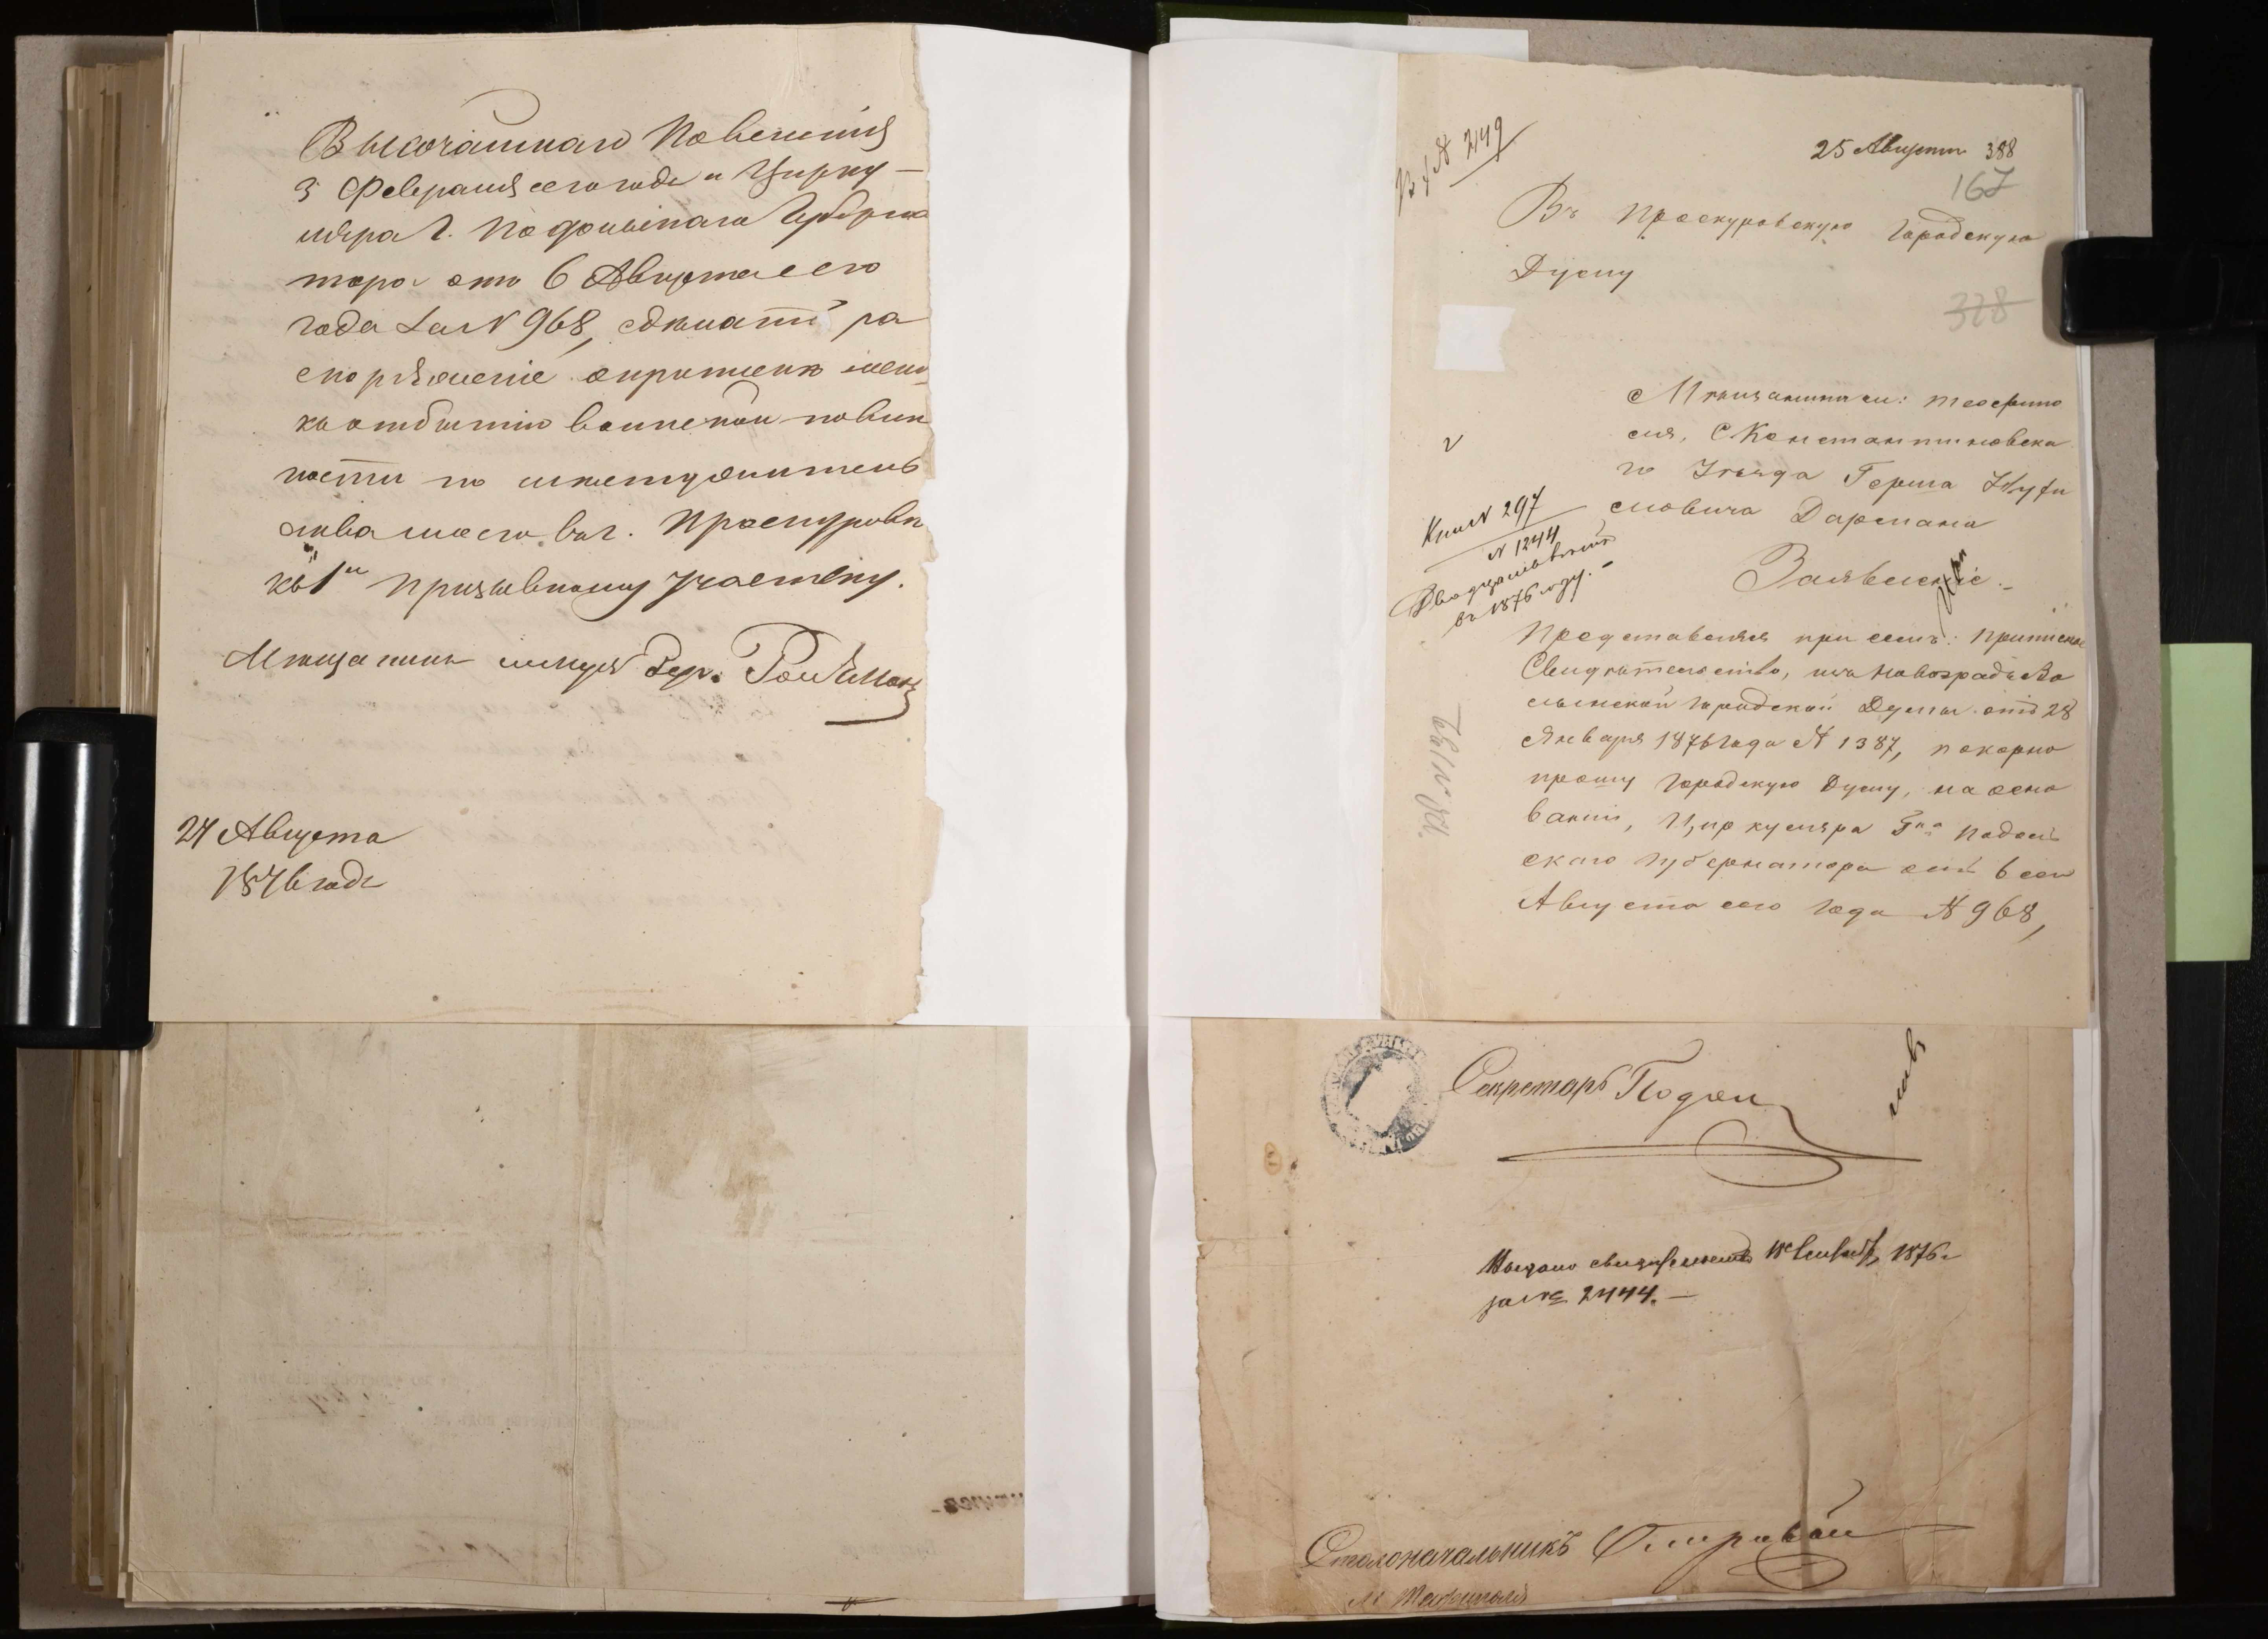 Высочайшаго Повеленія
3 Февраля сего года и Цирку-
ляра Г. Подольскаго Губерна
тора отъ 6 Августа сего
года за № 968, сделать ра
споряженіе о припискѣ меня
къ отбытію воинской повин
ности по местужитель
ства моего въ г. Проскуровѣ
къ 1му призывному участку.
Мещанинъ
24 Августа
1876 года
№ 2149
25 Августа 388
167
Въ Проскуровскую Городскую
Думу
328
Мѣщанина м. Теофипо
ля, С Константиновска
го Уѣзда Герша
Дармана
Заявленіе.
№ 297
№ 1244
въ 1876 году.
Представляя при семъ: приписное
Свидѣтельство, изъ Новоградъ Во
лынской городской Думы отъ 28
Января 1876 года № 1387, покорно
прошу Городскую Думу, на осно
ваніи, Циркуляра Гна Подоль
скаго Губернатора отъ 6
Августа сего года № 968,
Секретарь
Выдано свидѣтельство 1876 г
за № 2444.
Столоначальникъ